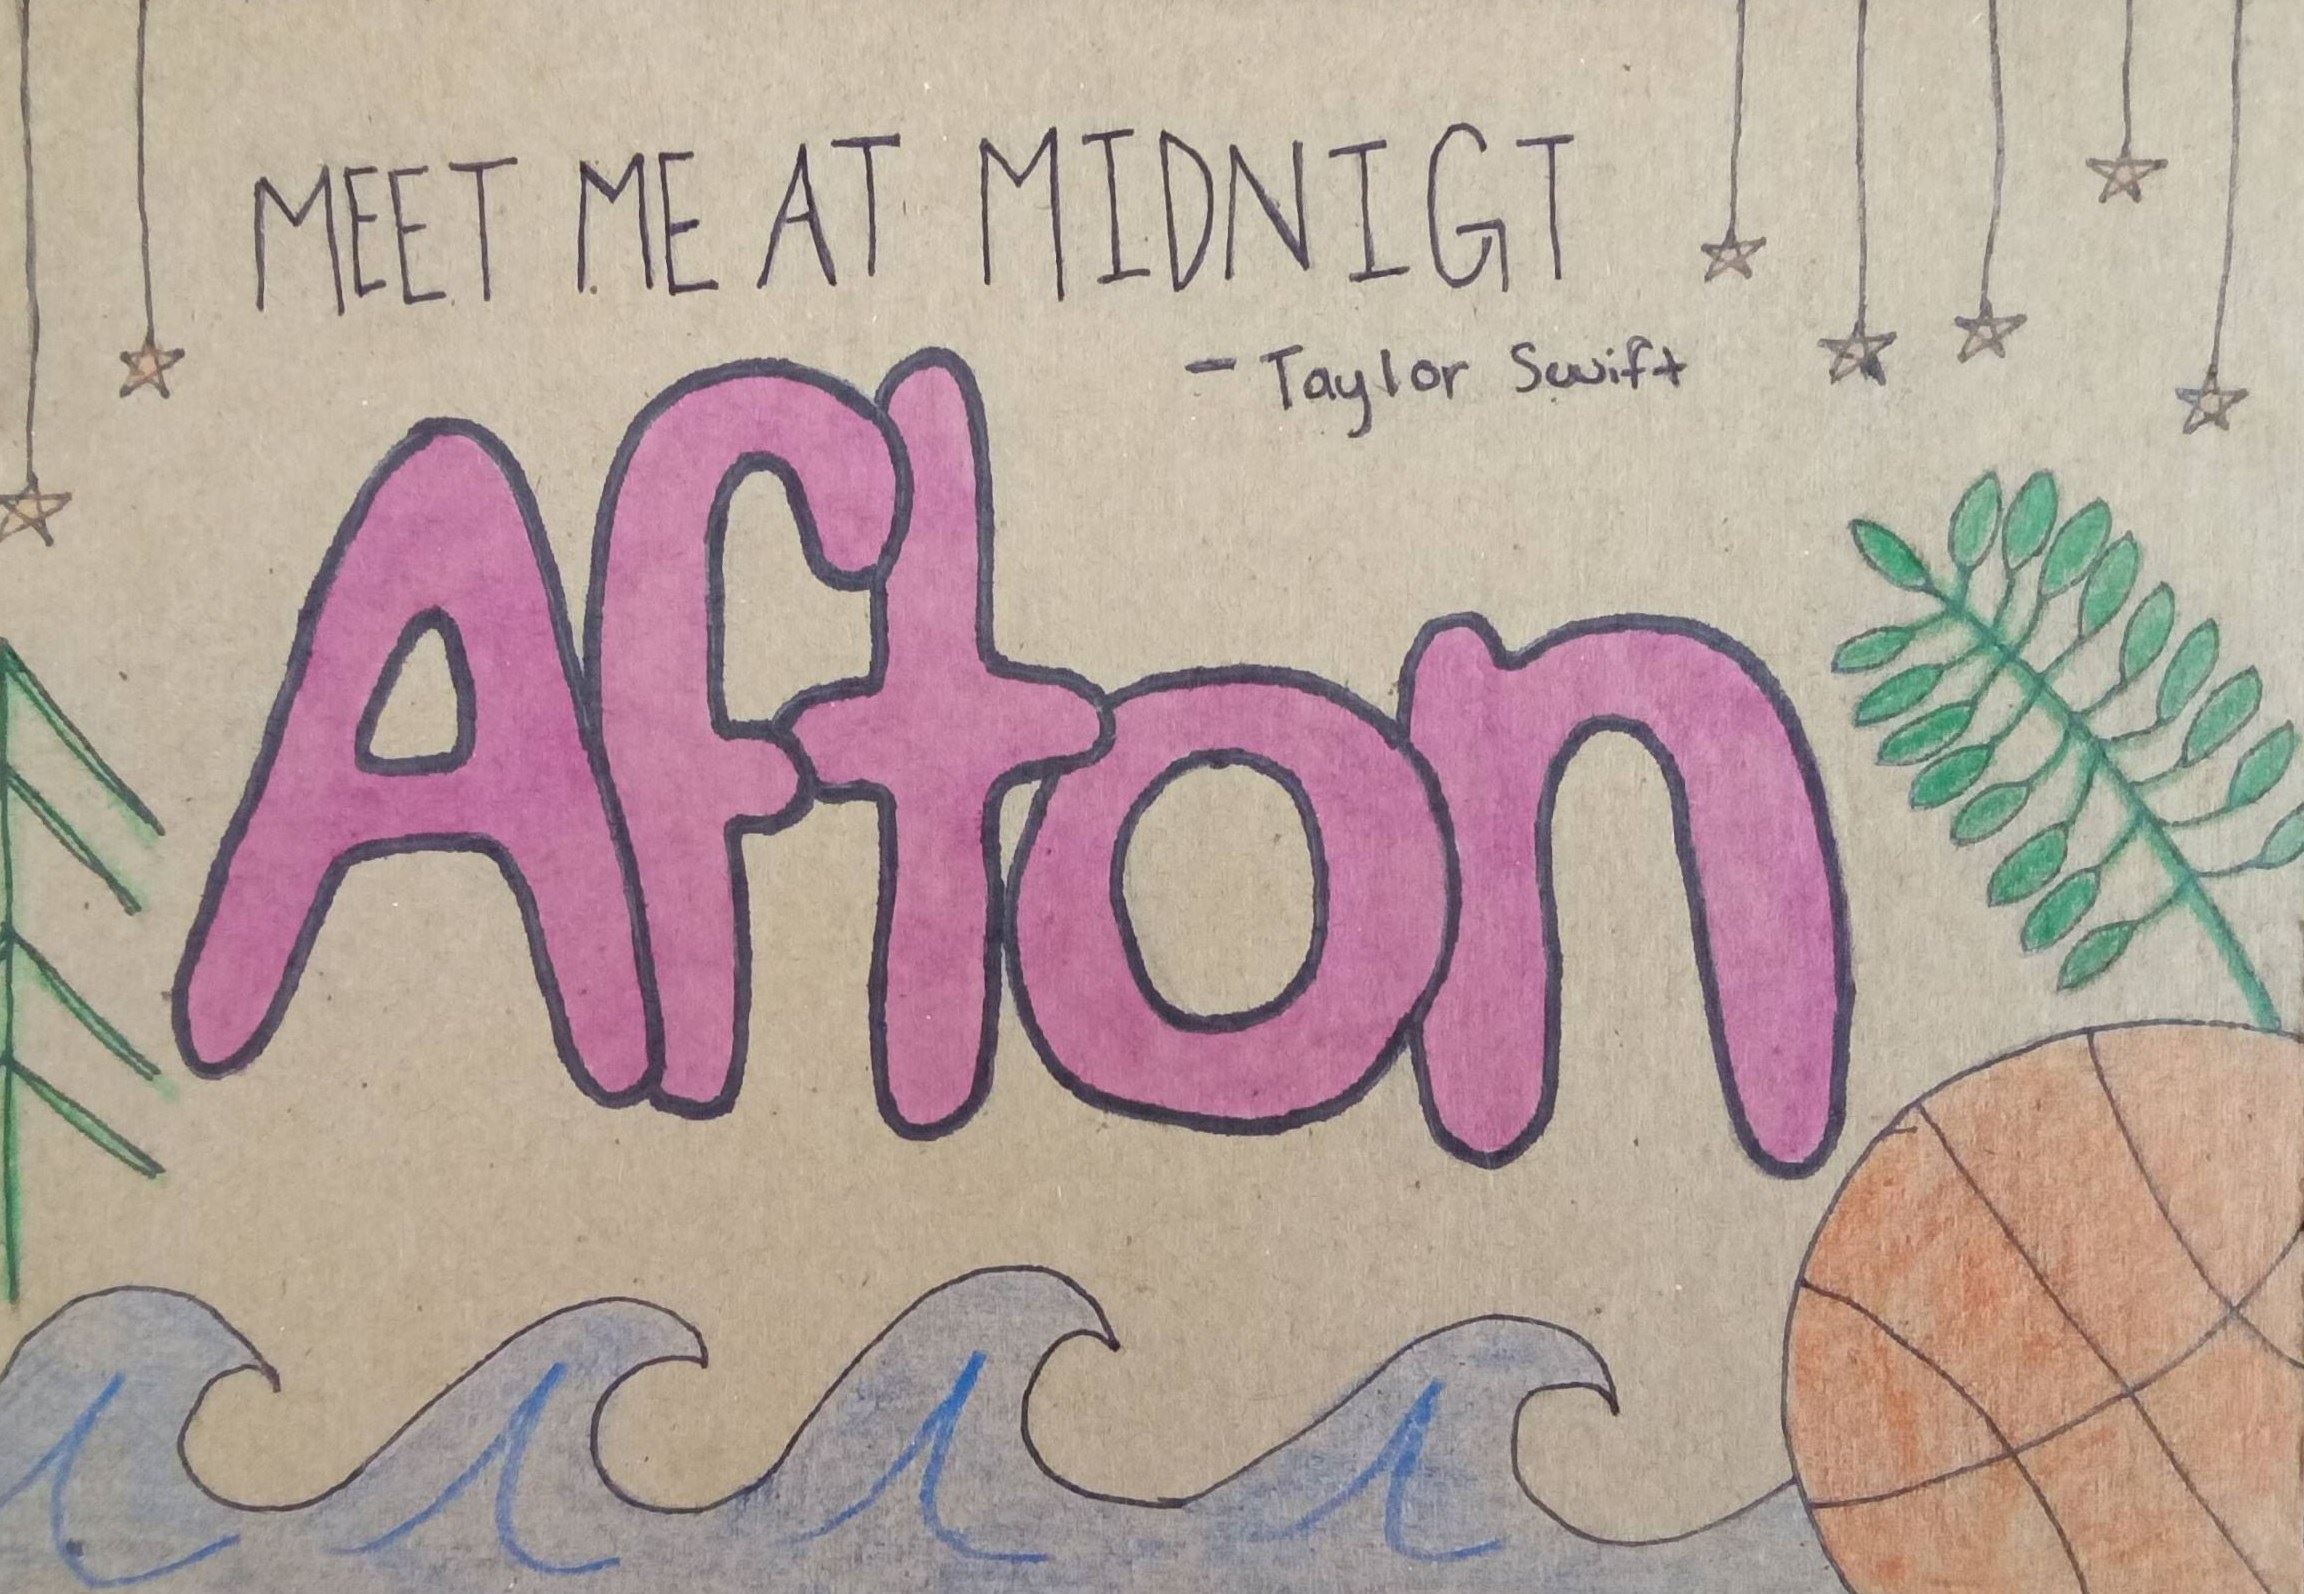 MEET ME AT MIDNIGT
- Taylor Swift
Afton